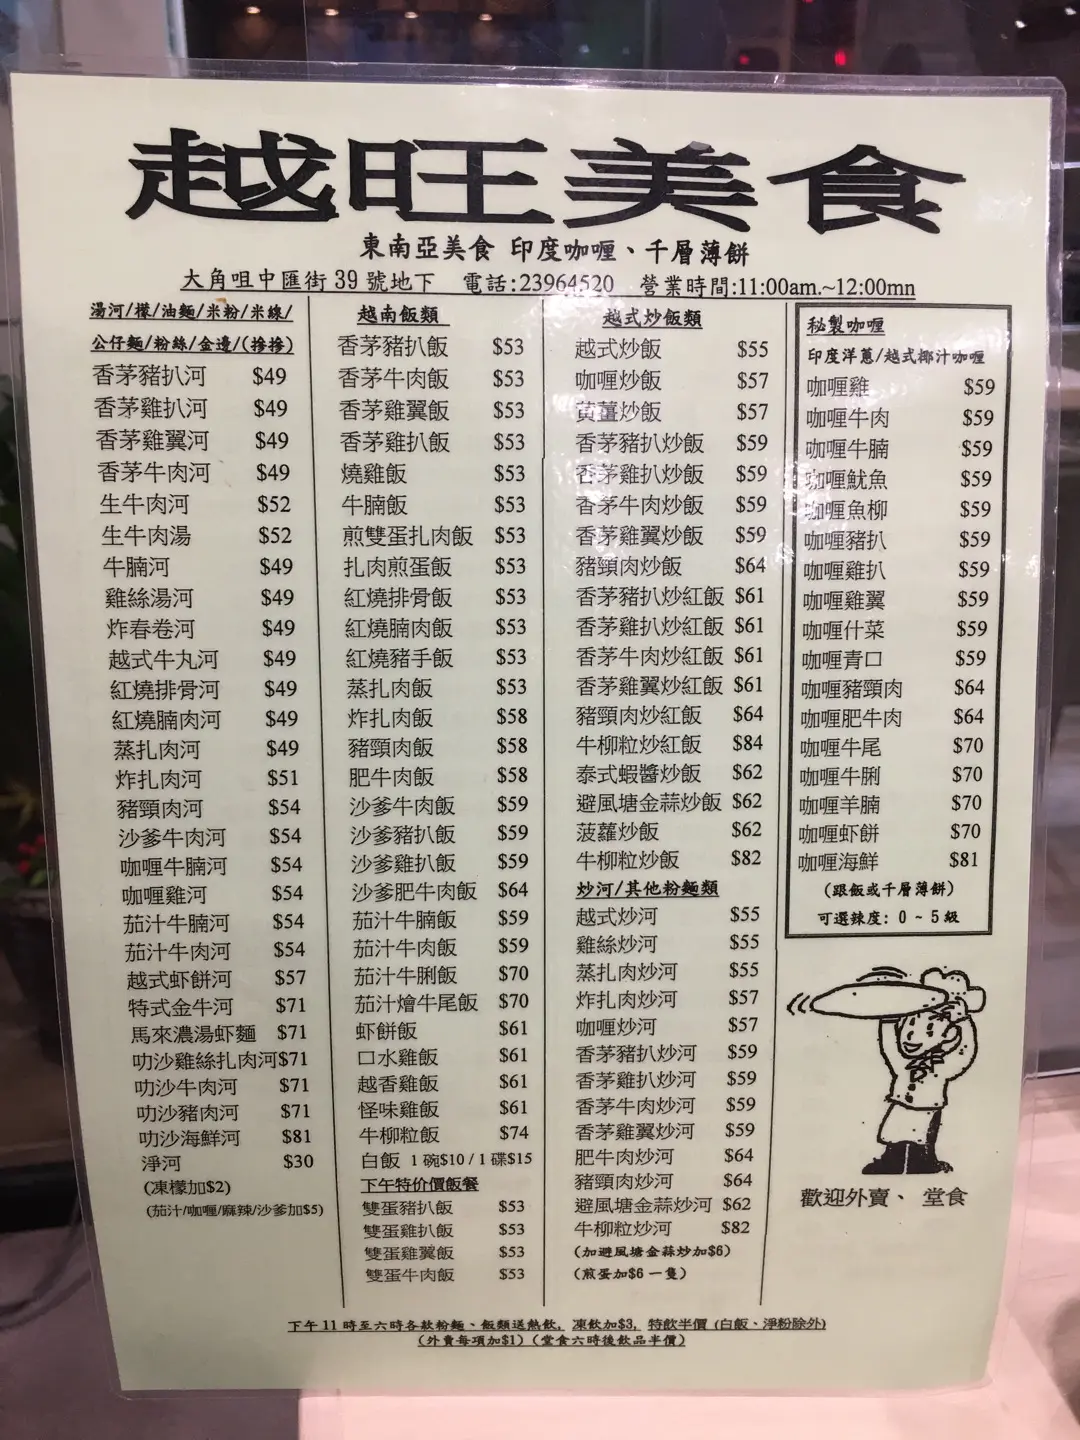 越旺美食
東南亞美食 印度咖喱、千層薄餅
大角咀中匯街39號地下 電話:23964520 營業時間:11:00am.~12:00mn
湯河/檬/油麵/米粉/米線/
公仔麵/粉絲/金邊/(摻摻)
香茅豬扒河 $49
香茅雞扒河 $49
香茅雞翼河 $49
香茅牛肉河 $49
生牛肉河 $52
生牛肉湯 $52
牛腩河 $49
雞絲湯河 $49
炸春卷河 $49
越式牛丸河 $49
紅燒排骨河 $49
紅燒腩肉河 $49
蒸扎肉河 $49
炸扎肉河 $51
豬頸肉河 $54
沙爹牛肉河 $54
咖喱牛腩河 $54
咖喱雞河 $54
茄汁牛腩河 $54
茄汁牛肉河 $54
越式虾餅河 $57
特式金牛河 $71
馬來濃湯虾麵 $71
叻沙雞絲扎肉河$71
叻沙牛肉河 $71
叻沙豬肉河 $71
叻沙海鮮河 $81
淨河 $30
(凍檬加$2)
(茄汁/咖喱/麻辣/沙爹加$5)
越南飯類
香茅豬扒飯 $53
香茅牛肉飯 $53
香茅雞翼飯 $53
香茅雞扒飯 $53
燒雞飯 $53
牛腩飯 $53
煎雙蛋扎肉飯 $53
扎肉煎蛋飯 $53
紅燒排骨飯 $53
紅燒腩肉飯 $53
紅燒豬手飯 $53
蒸扎肉飯 $53
炸扎肉飯 $58
豬頸肉飯 $58
肥牛肉飯 $58
沙爹牛肉飯 $59
沙爹豬扒飯 $59
沙爹雞扒飯 $59
沙爹肥牛肉飯 $64
茄汁牛腩飯 $59
茄汁牛肉飯 $59
茄汁牛脷飯 $70
茄汁燴牛尾飯 $70
虾餅飯 $61
口水雞飯 $61
越香雞飯 $61
怪味雞飯 $61
牛柳粒飯 $74
白飯 1碗$10/1碟$15
下午特价價飯餐
雙蛋豬扒飯 $53
雙蛋雞扒飯 $53
雙蛋雞翼飯 $53
雙蛋牛肉飯 $53
越式炒飯類
越式炒飯 $55
咖喱炒飯 $57
黄薑炒飯 $57
香茅豬扒炒飯 $59
香茅雞扒炒飯 $59
香茅牛肉炒飯 $59
香茅雞翼炒飯 $59
豬頸肉炒飯 $64
香茅豬扒炒紅飯 $61
香茅雞扒炒紅飯 $61
香茅牛肉炒紅飯 $61
香茅雞翼炒紅飯 $61
豬頸肉炒紅飯 $64
牛柳粒炒紅飯 $84
泰式蝦醬炒飯 $62
避風塘金蒜炒飯 $62
菠蘿炒飯 $62
牛柳粒炒飯 $82
炒河/其他粉麵類
越式炒河 $55
雞絲炒河 $55
蒸扎肉炒河 $55
炸扎肉炒河 $57
咖喱炒河 $57
香茅豬扒炒河 $59
香茅雞扒炒河 $59
香茅牛肉炒河 $59
香茅雞翼炒河 $59
肥牛肉炒河 $64
豬頸肉炒河 $64
避風塘金蒜炒河 $62
牛柳粒炒河 $82
(加避風塘金蒜炒加$6)
(煎蛋加$6 一隻)
秘製咖喱
印度洋蔥/越式椰汁咖喱
咖喱雞 $59
咖喱牛肉 $59
咖喱牛腩 $59
咖喱魷魚 $59
咖喱魚柳 $59
咖喱豬扒 $59
咖喱雞扒 $59
咖喱雞翼 $59
咖喱什菜 $59
咖喱青口 $59
咖喱豬頸肉 $64
咖喱肥牛肉 $64
咖喱牛尾 $70
咖喱牛脷 $70
咖喱羊腩 $70
咖喱虾餅 $70
咖喱海鮮 $81
(跟飯或千層薄餅)
可選辣度: 0 ~ 5級
歡迎外賣、堂食
下午11時至六時各款粉麵、飯類送熱飲, 凍飲加$3, 特飲半價 (白飯、淨粉除外)
(外賣每項加$1) (堂食六時後飲品半價)